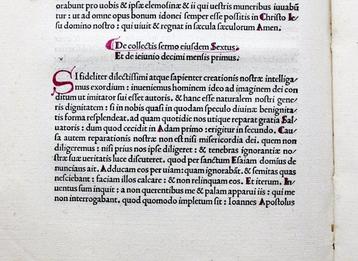 orabunt pro uobis & ipsæ elemosinæ & ii ugenti us nostri inuabũ
tur : ut ad omne opus bonum idonei semper esse possitis in Christo Ie
su domino nostro : qui uiuit & regnat in sæcula sæculorum Amen.
De collectis sermo eiusdem Sextus.
Et de ieiunio decimi mensis primus.
SI fideliter dilectissimi atque sapienter creationis nostræ intelliga
mus exordium : inueniemus hominem ideo ad imaginem dei con
ditum ut imitator sui esset autoris. & hanc esse naturalem nostri gene
ris dignitatem : si in nobis quasi in quodam speculo diuinæ benignita
tis forma resplendeat. ad quam quotidie nos utique reparat gratia Sal
uatoris : dum quod cecidit in Adam primo : erigitur in secundo. Cau
sa autem reparationis nostræ non est nisi misericordia dei. quem non
diligeremus : nisi prius nos ipse diligeret : & tenebras ignorantiæ no
stræ suæ ueritatis luce discuteret. quod per sanctum Esaiam domi̅us de
nuncians ait. Adducam eos per uiam : quam ignorabãt. & semitas quas
nesciebant : faciam illos calcare : & non relinquam eos. Et iterum. In
uentus sum inquit : a non querentibus me & palam apparui iis : qui me
non interrogabant. quod quomodo impletum sit : Ioannes Apostolus